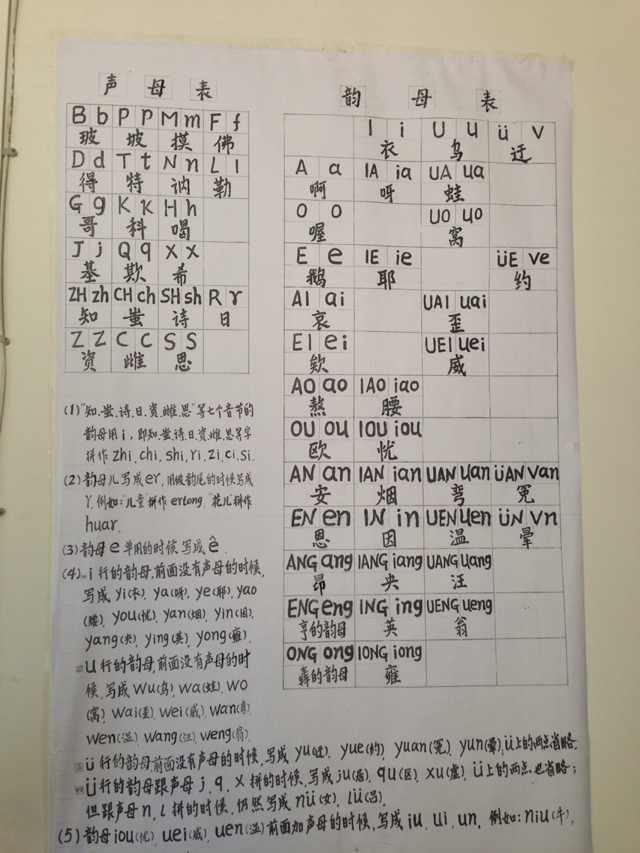 声母表
B b P P M m F f
玻 坡 摸 佛
D d T t N n L l
得 特 讷 勒
G g K K H h
哥 科 喝
J j Q q X x
基 欺 希
ZH zh CH ch SH sh R r
知 蚩 诗 日
Z Z C C S S
资 雌 思
韵母表
I i U u ü v
衣 乌 迂
A a IA ia UA ua
啊 呀 蛙
O o UO uo
喔 窝
E e IE ie ÜE ve
鹅 耶 约
AI ai UAI uai
哀 歪
EI ei UEI uei
欸 威
AO ao IAO iao
熬 腰
OU ou IOU iou
欧 忧
AN an IAN ian UAN uan ÜAN van
安 烟 弯 冤
EN en IN in UEN uen ÜN vn
恩 因 温 晕
ANG ang IANG iang UANG uang
昂 央 汪
ENG eng ING ing UENG ueng
亨的韵母 英 翁
ONG ong IONG iong
轰的韵母 雍
(1)"知.蚩.诗.日.资.雌.思"等七个音节的
韵母用i,即知.蚩.诗.日.资.雌.思等字
拼作zhi.chi.shi.ri.zi.ci.si.
(2)韵母儿写成er,用做韵尾的时候写成
r.例如:"儿童"拼作ertong."花儿"拼作
huar.
(3)韵母e单用的时候写成ê.
(4)i行的韵母,前面没有声母的时候,
写成yi(衣).ya(呀).ye(耶).yao
(腰).you(忧).yan(烟).yin(因).
yang(央).ying(英).yong(雍).
u行的韵母,前面没有声母的时
候,写成wu(乌).wa(蛙).wo
(窝).wai(歪).wei(威).wan(弯).
wen(温).wang(汪).weng(翁).
ü行的韵母前面没有声母的时候,写成yu(迂).yue(约).yuan(冤).yun(晕).ü上的两点省略.
ü行的韵母跟声母j.q.x拼的时候,写成ju(居).qu(区).xu(虚).ü上的两点也省略;
但跟声母n.l拼的时候,仍然写成nü(女).lü(吕).
(5)韵母iou(忧).uei(威).uen(温)前面加声母的时候,写成iu.ui.un.例如:niu(牛).